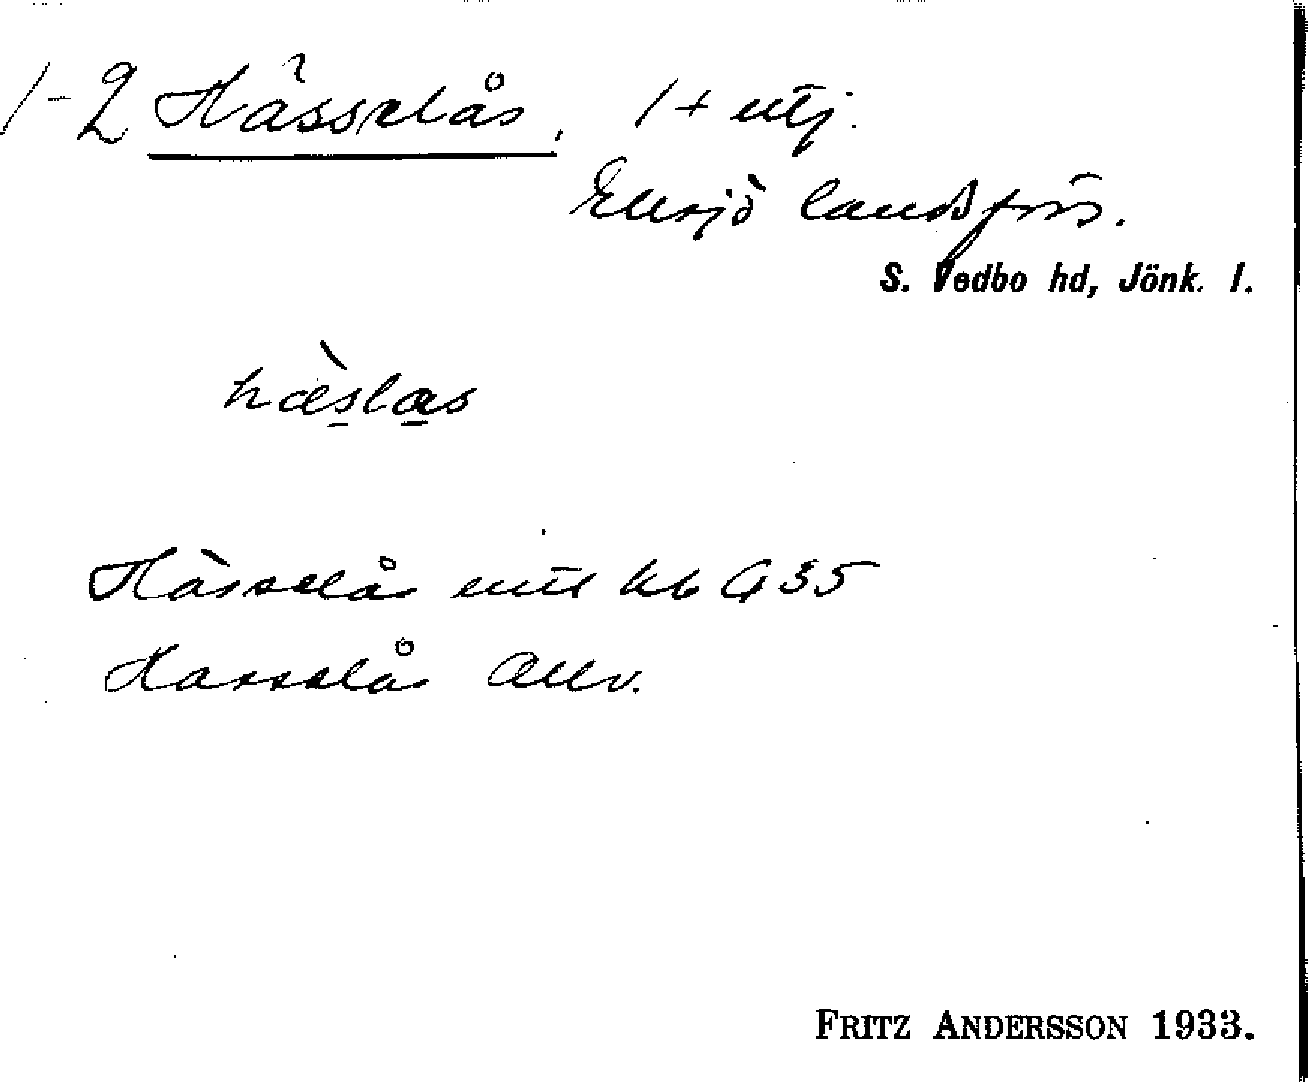 1-2 Hässelås. 1 + utj.
Eksjö landsförs.
S. Vedbo hd, Jönk. l.
hæ̀slas
Hässelås enl kb G35
Hasselås Allv.
FRITZ ANDERSSON 1933.